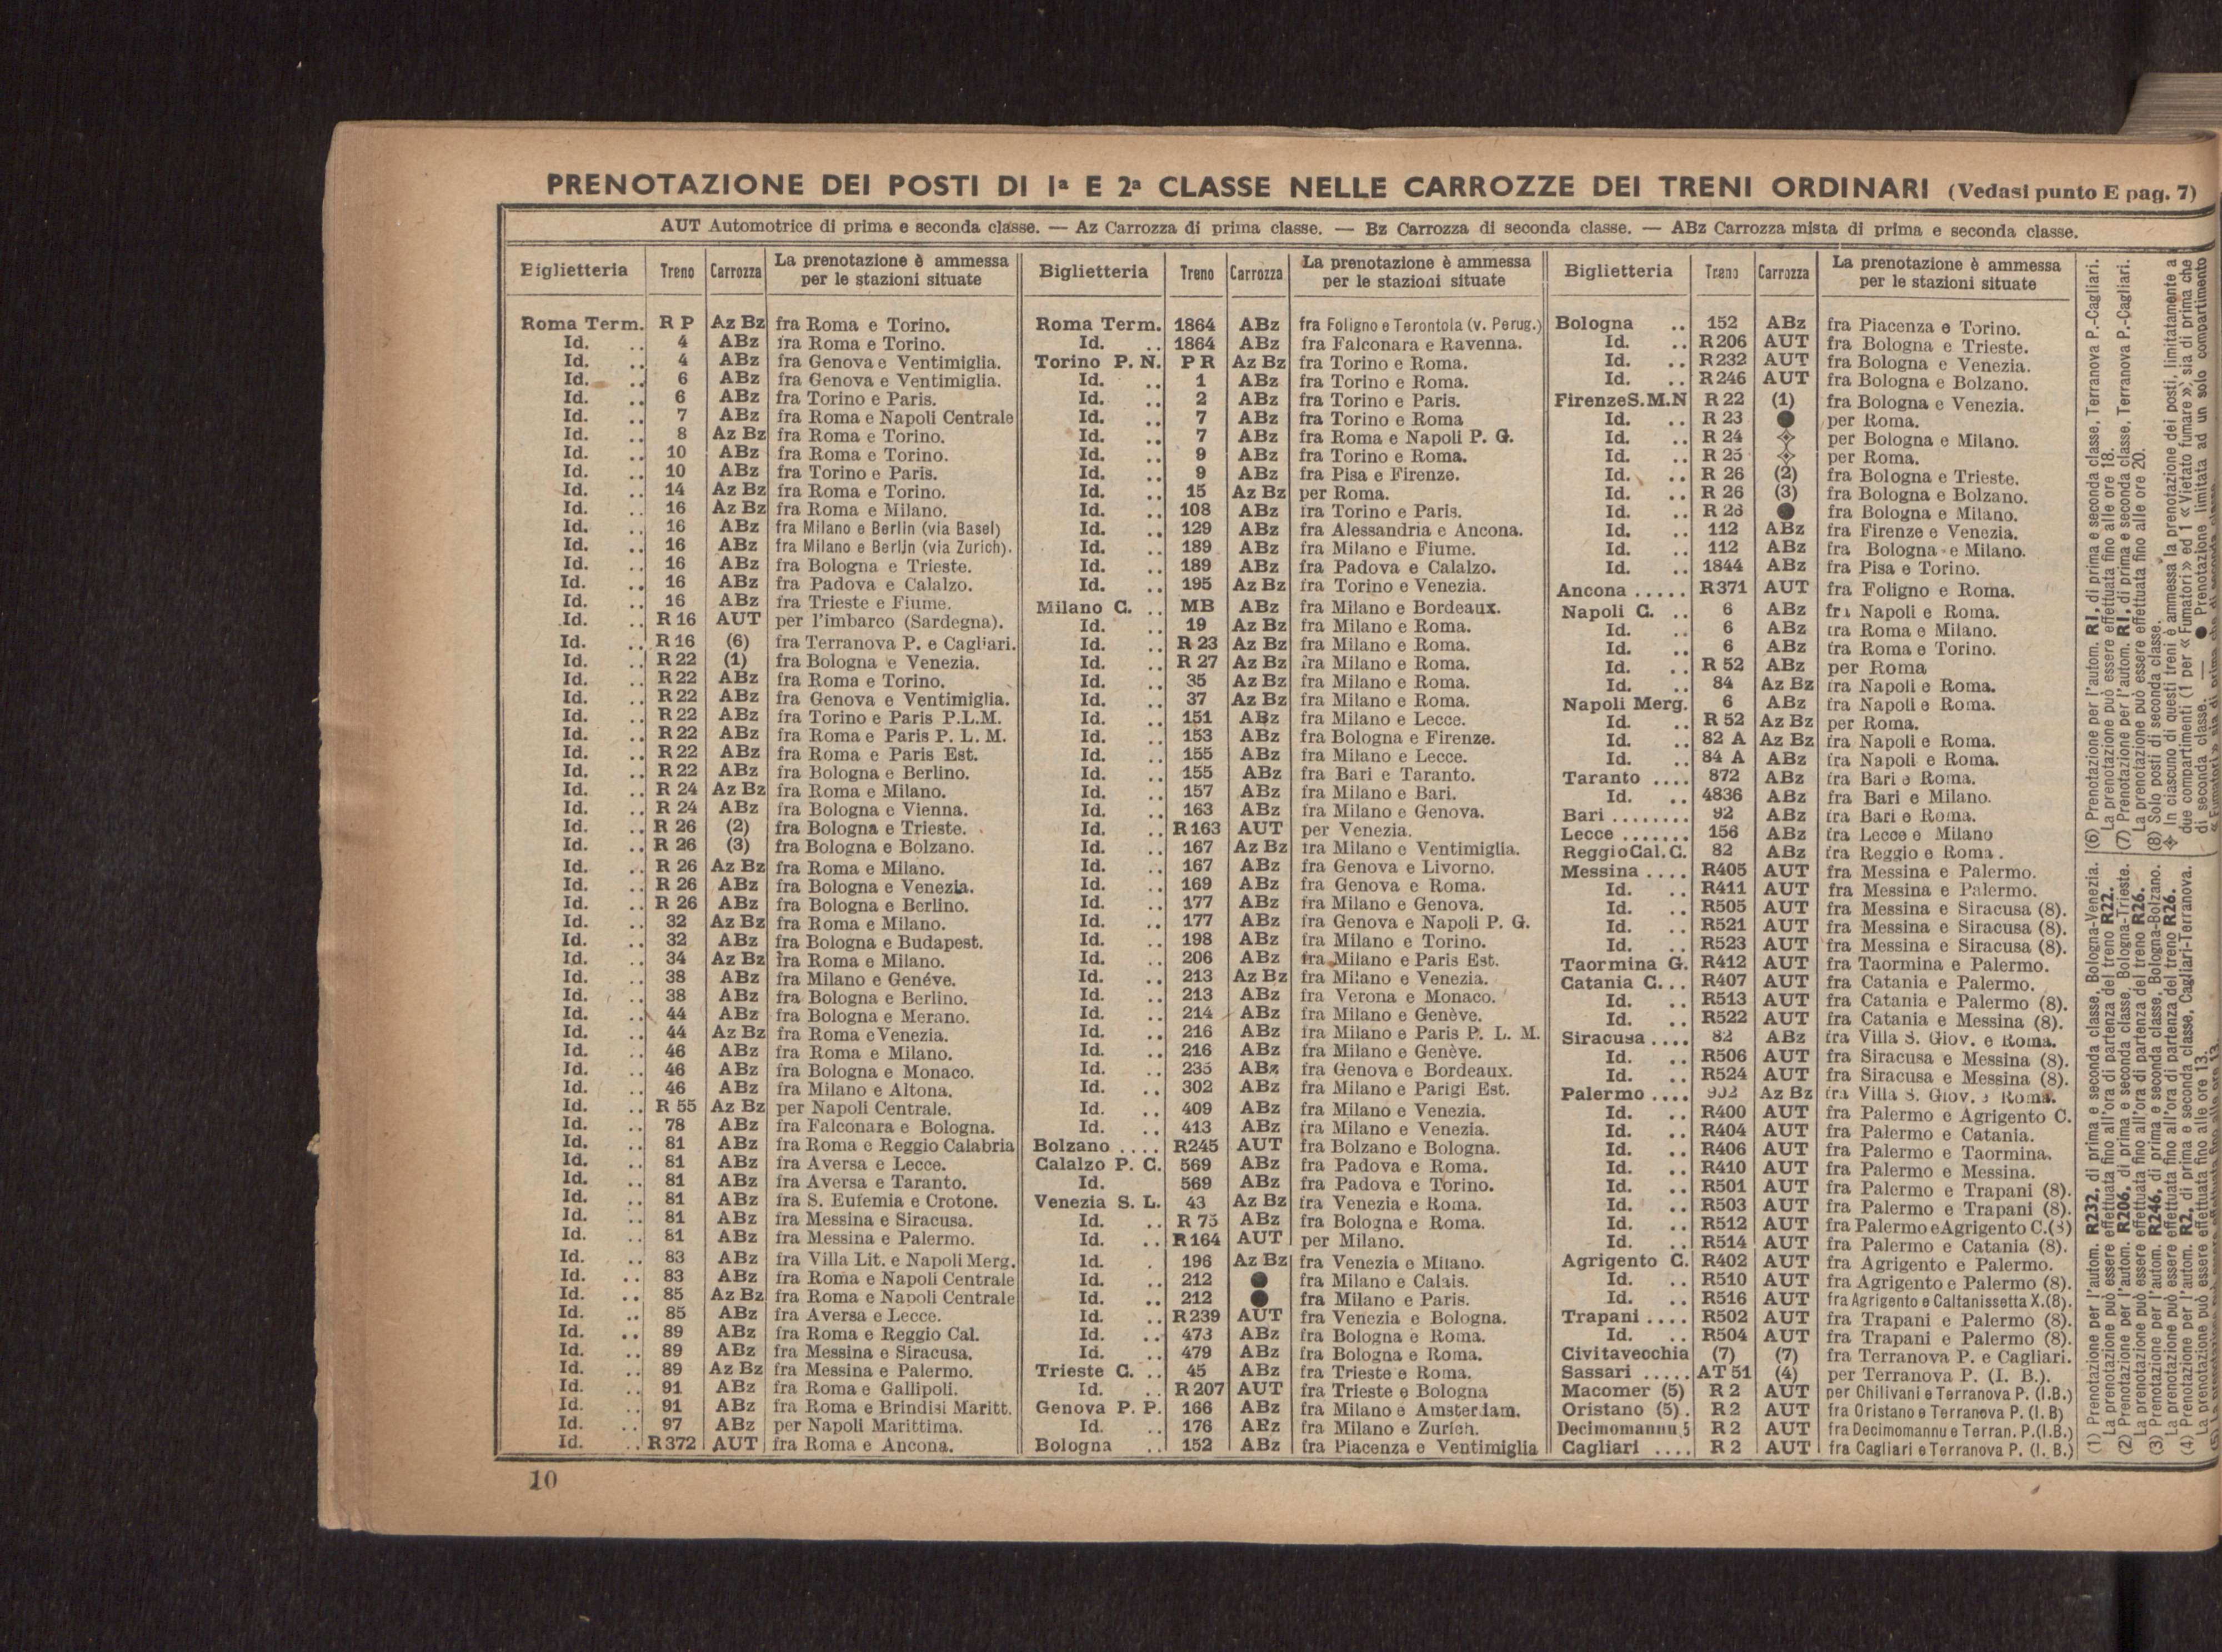 PRENOTAZIONE DEI POSTI DI Iª E 2ª CLASSE NELLE CARROZZE DEI TRENI ORDINARI (Vedasi punto E pag. 7)
AUT Automotrice di prima e seconda classe. — Az Carrozza di prima classe. — Bz Carrozza di seconda classe. — ABz Carrozza mista di prima e seconda classe.
Biglietteria Treno Carrozza La prenotazione è ammessa per le stazioni situate
Roma Term. R P Az Bz fra Roma e Torino.
Id. .. 4 ABz fra Roma e Torino.
Id. .. 4 ABz fra Genova e Ventimiglia.
Id. .. 6 ABz fra Genova e Ventimiglia.
Id. .. 6 ABz fra Torino e Paris.
Id. .. 7 ABz fra Roma e Napoli Centrale
Id. .. 8 Az Bz fra Roma e Torino.
Id. .. 10 ABz fra Roma e Torino.
Id. .. 10 ABz fra Torino e Paris.
Id. .. 14 Az Bz fra Roma e Torino.
Id. .. 16 Az Bz fra Roma e Milano.
Id. .. 16 ABz fra Milano e Berlin (via Basel)
Id. .. 16 ABz fra Milano e Berlin (via Zurich).
Id. .. 16 ABz fra Bologna e Trieste.
Id. .. 16 ABz fra Padova e Calalzo.
Id. .. 16 ABz fra Trieste e Fiume.
Id. .. R 16 AUT per l'imbarco (Sardegna).
Id. .. R 16 (6) fra Terranova P. e Cagliari.
Id. .. R 22 (1) fra Bologna e Venezia.
Id. .. R 22 ABz fra Roma e Torino.
Id. .. R 22 ABz fra Genova e Ventimiglia.
Id. .. R 22 ABz fra Torino e Paris P.L.M.
Id. .. R 22 ABz fra Roma e Paris P. L. M.
Id. .. R 22 ABz fra Roma e Paris Est.
Id. .. R 22 ABz fra Bologna e Berlino.
Id. .. R 24 Az Bz fra Roma e Milano.
Id. .. R 24 ABz fra Bologna e Vienna.
Id. .. R 26 (2) fra Bologna e Trieste.
Id. .. R 26 (3) fra Bologna e Bolzano.
Id. .. R 26 Az Bz fra Roma e Milano.
Id. .. R 26 ABz fra Bologna e Venezia.
Id. .. R 26 ABz fra Bologna e Berlino.
Id. .. 32 Az Bz fra Roma e Milano.
Id. .. 32 ABz fra Bologna e Budapest.
Id. .. 34 Az Bz fra Roma e Milano.
Id. .. 38 ABz fra Milano e Genéve.
Id. .. 38 ABz fra Bologna e Berlino.
Id. .. 44 ABz fra Bologna e Merano.
Id. .. 44 Az Bz fra Roma e Venezia.
Id. .. 46 ABz fra Roma e Milano.
Id. .. 46 ABz fra Bologna e Monaco.
Id. .. 46 ABz fra Milano e Altona.
Id. .. R 55 Az Bz per Napoli Centrale.
Id. .. 78 ABz fra Falconara e Bologna.
Id. .. 81 ABz fra Roma e Reggio Calabria
Id. .. 81 ABz fra Aversa e Lecce.
Id. .. 81 ABz fra Aversa e Taranto.
Id. .. 81 ABz fra S. Eufemia e Crotone.
Id. .. 81 ABz fra Messina e Siracusa.
Id. .. 81 ABz fra Messina e Palermo.
Id. .. 83 ABz fra Villa Lit. e Napoli Merg.
Id. .. 83 ABz fra Roma e Napoli Centrale
Id. .. 85 Az Bz fra Roma e Napoli Centrale
Id. .. 85 ABz fra Aversa e Lecce.
Id. .. 89 ABz fra Roma e Reggio Cal.
Id. .. 89 ABz fra Messina e Siracusa.
Id. .. 89 Az Bz fra Messina e Palermo.
Id. .. 91 ABz fra Roma e Gallipoli.
Id. .. 91 ABz fra Roma e Brindisi Maritt.
Id. .. 97 ABz per Napoli Marittima.
Id. .. R 372 AUT fra Roma e Ancona.
Biglietteria Treno Carrozza La prenotazione è ammessa per le stazioni situate
Roma Term. 1864 ABz fra Foligno e Terontola (v. Perug.)
Id. .. 1864 ABz fra Falconara e Ravenna.
Torino P. N. P R Az Bz fra Torino e Roma.
Id. .. 1 ABz fra Torino e Roma.
Id. .. 2 ABz fra Torino e Paris.
Id. .. 7 ABz fra Torino e Roma
Id. .. 7 ABz fra Roma e Napoli P. G.
Id. .. 9 ABz fra Torino e Roma.
Id. .. 9 ABz fra Pisa e Firenze.
Id. .. 15 Az Bz per Roma.
Id. .. 108 ABz fra Torino e Paris.
Id. .. 129 ABz fra Alessandria e Ancona.
Id. .. 189 ABz fra Milano e Fiume.
Id. .. 189 ABz fra Padova e Calalzo.
Id. .. 195 Az Bz fra Torino e Venezia.
Milano C. .. MB ABz fra Milano e Bordeaux.
Id. .. 19 Az Bz fra Milano e Roma.
Id. .. R 23 Az Bz fra Milano e Roma.
Id. .. R 27 Az Bz fra Milano e Roma.
Id. .. 35 Az Bz fra Milano e Roma.
Id. .. 37 Az Bz fra Milano e Roma.
Id. .. 151 ABz fra Milano e Lecce.
Id. .. 153 ABz fra Bologna e Firenze.
Id. .. 155 ABz fra Milano e Lecce.
Id. .. 155 ABz fra Bari e Taranto.
Id. .. 157 ABz fra Milano e Bari.
Id. .. 163 ABz fra Milano e Genova.
Id. .. R 163 AUT per Venezia.
Id. .. 167 Az Bz fra Milano e Ventimiglia.
Id. .. 167 ABz fra Genova e Livorno.
Id. .. 169 ABz fra Genova e Roma.
Id. .. 177 ABz fra Milano e Genova.
Id. .. 177 ABz fra Genova e Napoli P. G.
Id. .. 198 ABz fra Milano e Torino.
Id. .. 206 ABz fra Milano e Paris Est.
Id. .. 213 Az Bz fra Milano e Venezia.
Id. .. 213 ABz fra Verona e Monaco.
Id. .. 214 ABz fra Milano e Genève.
Id. .. 216 ABz fra Milano e Paris P. L. M.
Id. .. 216 ABz fra Milano e Genève.
Id. .. 235 ABz fra Genova e Bordeaux.
Id. .. 302 ABz fra Milano e Parigi Est.
Id. .. 409 ABz fra Milano e Venezia.
Id. .. 413 ABz fra Milano e Venezia.
Bolzano .... R245 AUT fra Bolzano e Bologna.
Calalzo P. C. 569 ABz fra Padova e Roma.
Id. 569 ABz fra Padova e Torino.
Venezia S. L. 43 Az Bz fra Venezia e Roma.
Id. .. R 75 ABz fra Bologna e Roma.
Id. .. R 164 AUT per Milano.
Id. . 196 Az Bz fra Venezia e Milano.
Id. .. 212 ● fra Milano e Calais.
Id. .. 212 ● fra Milano e Paris.
Id. .. R 239 AUT fra Venezia e Bologna.
Id. .. 473 ABz fra Bologna e Roma.
Id. .. 479 ABz fra Bologna e Roma.
Trieste C. .. 45 ABz fra Trieste e Roma.
Id. .. R 207 AUT fra Trieste e Bologna
Genova P. P. 166 ABz fra Milano e Amsterdam.
Id. .. 176 ABz fra Milano e Zurich.
Bologna .. 152 ABz fra Piacenza e Ventimiglia
Biglietteria Treno Carrozza La prenotazione è ammessa per le stazioni situate
Bologna .. 152 ABz fra Piacenza e Torino.
Id. .. R 206 AUT fra Bologna e Trieste.
Id. .. R 232 AUT fra Bologna e Venezia.
Id. .. R 246 AUT fra Bologna e Bolzano.
Firenze S.M.N R 22 (1) fra Bologna e Venezia.
Id. .. R 23 ● per Roma.
Id. .. R 24 ⟡ per Bologna e Milano.
Id. .. R 25 ⟡ per Roma.
Id. .. R 26 (2) fra Bologna e Trieste.
Id. .. R 26 (3) fra Bologna e Bolzano.
Id. .. R 26 ● fra Bologna e Milano.
Id. .. 112 ABz fra Firenze e Venezia.
Id. .. 112 ABz fra Bologna e Milano.
Id. .. 1844 ABz fra Pisa e Torino.
Ancona ..... R371 AUT fra Foligno e Roma.
Napoli C. .. 6 ABz fra Napoli e Roma.
Id. .. 6 ABz fra Roma e Milano.
Id. .. 6 ABz fra Roma e Torino.
Id. .. R 52 ABz per Roma
Id. .. 84 Az Bz fra Napoli e Roma.
Napoli Merg. 6 ABz fra Napoli e Roma.
Id. .. R 52 Az Bz per Roma.
Id. .. 82 A Az Bz fra Napoli e Roma.
Id. .. 84 A ABz fra Napoli e Roma.
Taranto .... 872 ABz fra Bari e Roma.
Id. .. 4836 ABz fra Bari e Milano.
Bari ........ 92 ABz fra Bari e Roma.
Lecce ....... 156 ABz fra Lecce e Milano
Reggio Cal. C. 82 ABz fra Reggio e Roma.
Messina .... R405 AUT fra Messina e Palermo.
Id. .. R411 AUT fra Messina e Palermo.
Id. .. R505 AUT fra Messina e Siracusa (8).
Id. .. R521 AUT fra Messina e Siracusa (8).
Id. .. R523 AUT fra Messina e Siracusa (8).
Taormina G. R412 AUT fra Taormina e Palermo.
Catania C... R407 AUT fra Catania e Palermo.
Id. .. R513 AUT fra Catania e Palermo (8).
Id. .. R522 AUT fra Catania e Messina (8).
Siracusa .... 82 ABz fra Villa S. Giov. e Roma.
Id. .. R506 AUT fra Siracusa e Messina (8).
Id. .. R524 AUT fra Siracusa e Messina (8).
Palermo .... 902 Az Bz fra Villa S. Giov. e Roma.
Id. .. R400 AUT fra Palermo e Agrigento C.
Id. .. R404 AUT fra Palermo e Catania.
Id. .. R406 AUT fra Palermo e Taormina.
Id. .. R410 AUT fra Palermo e Messina.
Id. .. R501 AUT fra Palermo e Trapani (8).
Id. .. R503 AUT fra Palermo e Trapani (8).
Id. .. R512 AUT fra Palermo e Agrigento C.(8)
Id. .. R514 AUT fra Palermo e Catania (8).
Agrigento C. R402 AUT fra Agrigento e Palermo.
Id. .. R510 AUT fra Agrigento e Palermo (8).
Id. .. R516 AUT fra Agrigento e Caltanissetta X.(8).
Trapani .... R502 AUT fra Trapani e Palermo (8).
Id. .. R504 AUT fra Trapani e Palermo (8).
Civitavecchia (7) (7) fra Terranova P. e Cagliari.
Sassari ..... AT 51 (4) per Terranova P. (I. B.).
Macomer (5) R 2 AUT per Chilivani e Terranova P. (I.B.)
Oristano (5). R 2 AUT fra Oristano e Terranova P. (I. B)
Decimomannu 5 R 2 AUT fra Decimomannu e Terran. P.(I.B.)
Cagliari .... R 2 AUT fra Cagliari e Terranova P. (I. B.)
(1) Prenotazione per l'autom. R232, di prima e seconda classe, Bologna-Venezia.
La prenotazione può essere effettuata fino all'ora di partenza del treno R22.
(2) Prenotazione per l'autom. R206, di prima e seconda classe, Bologna-Trieste.
La prenotazione può essere effettuata fino all'ora di partenza del treno R26.
(3) Prenotazione per l'autom. R246, di prima e seconda classe, Bologna-Bolzano.
La prenotazione può essere effettuata fino all'ora di partenza del treno R26.
(4) Prenotazione per l'autom. R2, di prima e seconda classe, Cagliari-Terranova.
La prenotazione può essere effettuata fino alle ore 13.
(6) Prenotazione per l'autom. RI, di prima e seconda classe, Terranova P.-Cagliari.
La prenotazione può essere effettuata fino alle ore 18.
(7) Prenotazione per l'autom. RI, di prima e seconda classe, Terranova P.-Cagliari.
La prenotazione può essere effettuata fino alle ore 20.
(8) Solo posti di seconda classe.
⟡ In ciascuno di questi treni è ammessa la prenotazione dei posti, limitatamente a
due compartimenti (1 per « Fumatori » ed 1 « Vietato fumare »), sia di prima che
di seconda classe. — ● Prenotazione limitata ad un solo compartimento
10